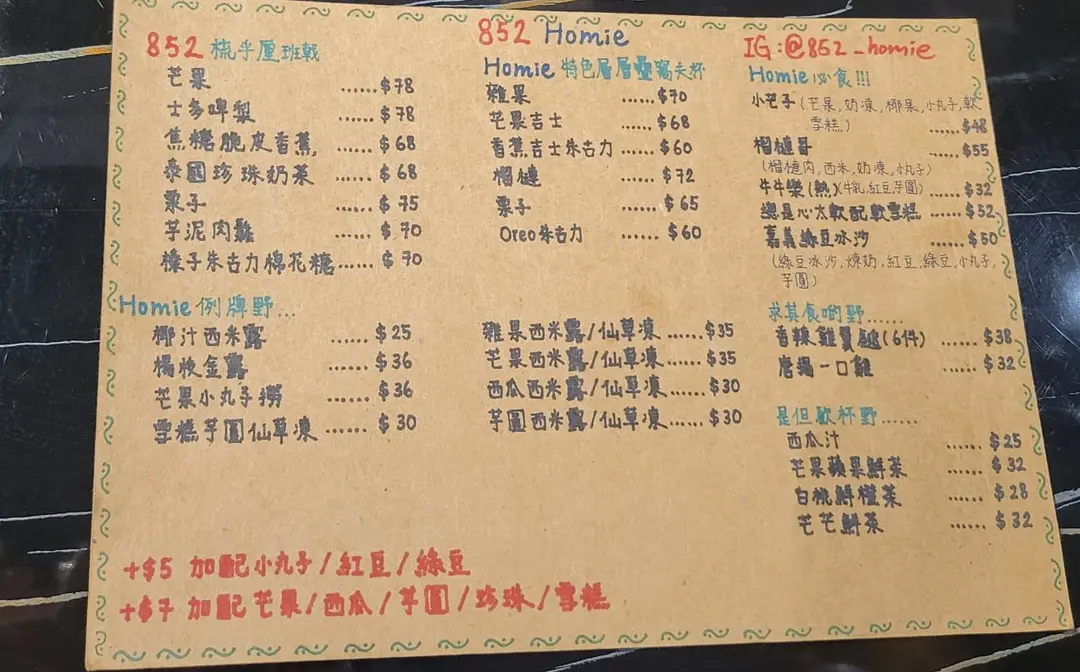 852 梳乎厘班戟
芒果 ......$78
士多啤梨 ......$78
焦糖脆皮香蕉 ......$68
泰國珍珠奶茶 ......$68
栗子 ......$75
芋泥肉鬆 ......$70
榛子朱古力棉花糖 ......$70
852 Homie
Homie 特色層層疊窩夫杯
雜果 ......$70
芒果吉士 ......$68
香蕉吉士朱古力 ......$60
榴槤 ......$72
栗子 ......$65
Oreo朱古力 ......$60
IG:@852_homie
Homie必食!!!
小芒子(芒果,奶凍,椰果,小丸子,軟
雪糕) ......$48
榴槤哥 ......$55
(榴槤肉,西米,奶凍,小丸子)
牛牛樂(熱)(牛乳,紅豆芋圓) ......$32
總是心太軟配軟雪糕 ......$52
嘉義綠豆冰沙 ......$50
(綠豆冰沙,煉奶,紅豆,綠豆,小丸子,
芋圓)
Homie 例牌野...
椰汁西米露 ......$25
楊枝金露 ......$36
芒果小丸子撈 ......$36
雪糕芋圓仙草凍 ......$30
雜果西米露/仙草凍 ......$35
芒果西米露/仙草凍 ......$35
西瓜西米露/仙草凍 ......$30
芋圓西米露/仙草凍 ......$30
求其食啲野......
香辣雞翼鎚(6件) ......$38
唐揚一口雞 ......$32
是但飲杯野......
西瓜汁 ......$25
芒果蘋果鮮茶 ......$32
白桃鮮橙茶 ......$28
芒芒鮮茶 ......$32
+$5 加配小丸子/紅豆/綠豆
+$7 加配芒果/西瓜/芋圓/珍珠/雪糕